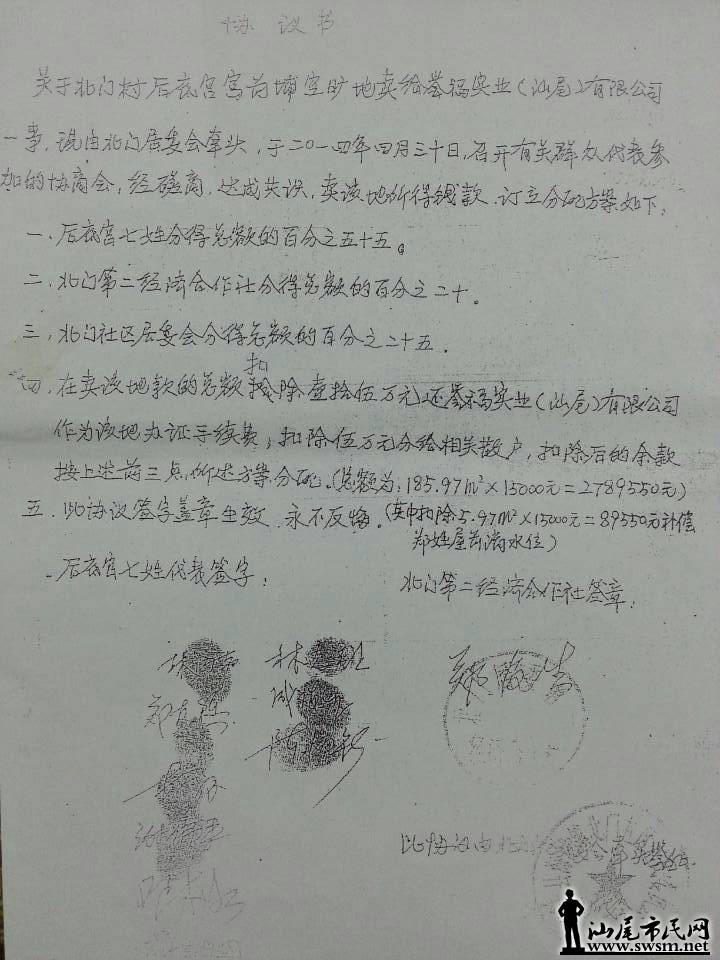 协议书
关于北门村后底宫宫前埔空旷地卖给誉福实业(汕尾)有限公司
一事,现由北门居委会牵头,于二〇一四年四月三十日,召开有关群众代表参
加的协商会,经磋商,达成共识,卖该地所得钱款,订立分配方案如下:
一、后底宫七姓分得总额的百分之五十五。
二、北门第二经济合作社分得总额的百分之二十。
三、北门社区居委会分得总额的百分之二十五.
扣
四、在卖该地款的总额 除壹拾伍万元还誉福实业(汕尾)有限公司
作为该地办证手续费;扣除伍万元分给相关散户,扣除后的余款
按上述前三点所述方案分配.(总额为:185.97m²×15000元=2789550元)
五、此协议签字盖章生效,永不反悔.(其中扣除5.97m²×15000元=89550元补偿
郑姓屋前滴水位)
后底宫七姓代表签字:
北门第二经济合作社签章:
林
郑
陈
此协议由北
汕尾市民网
www.swsm.net